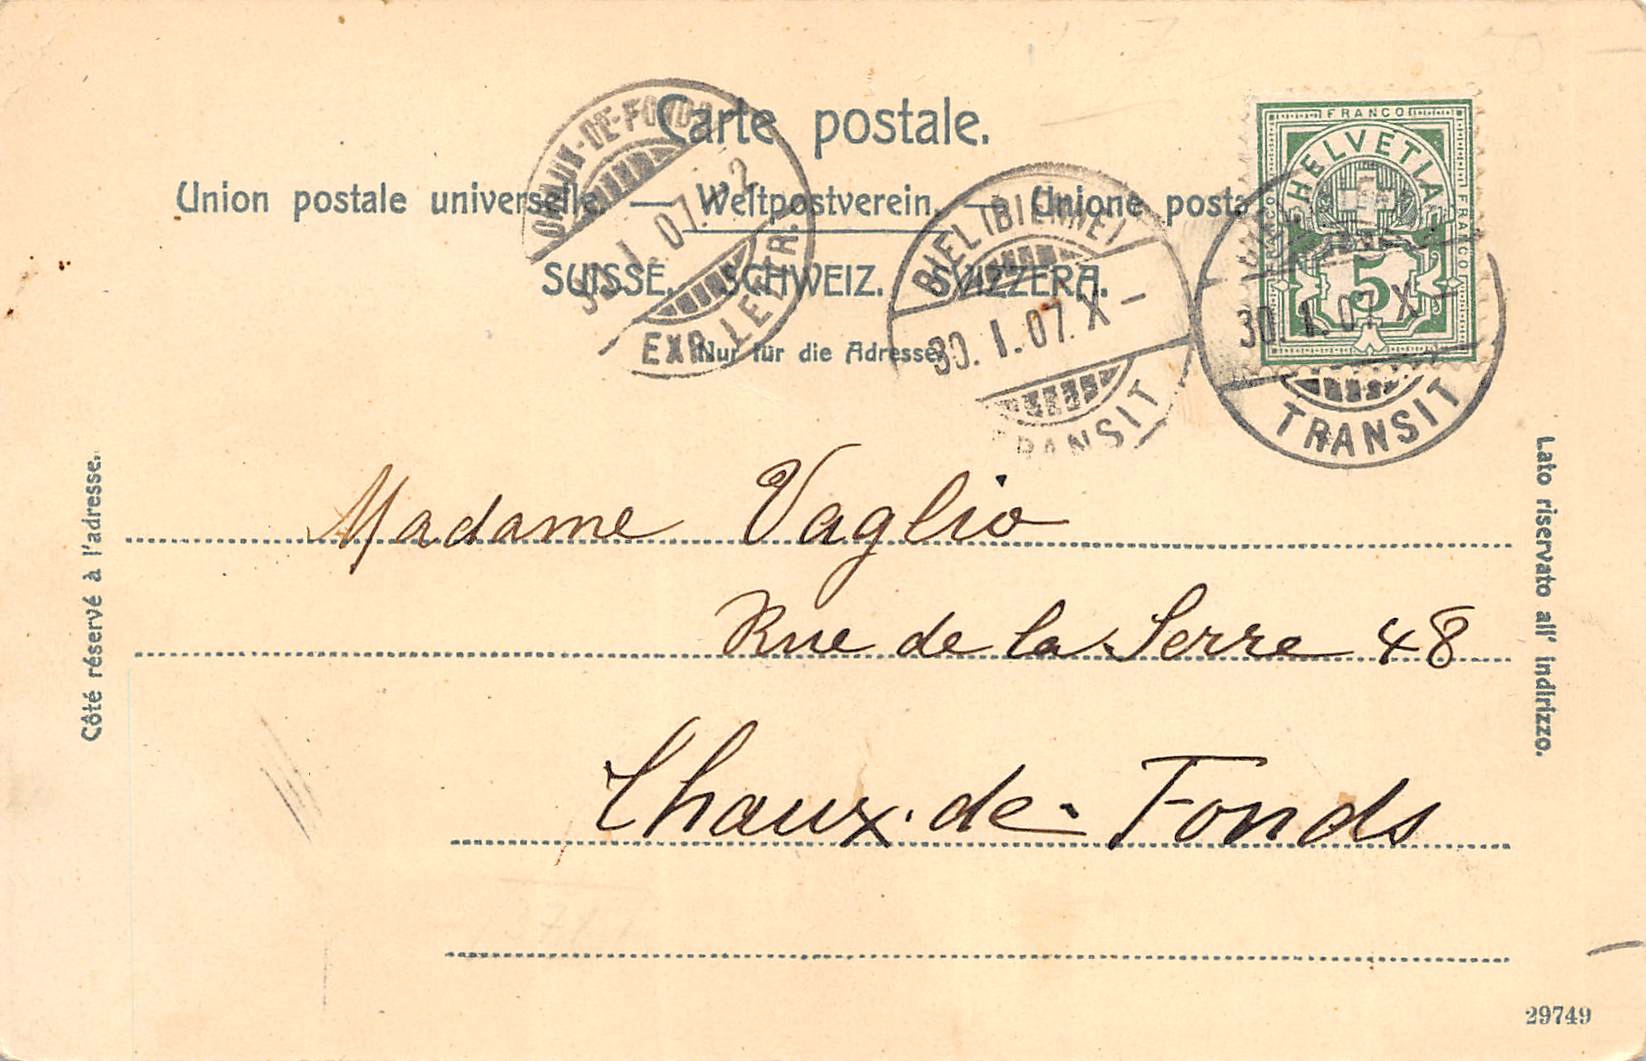 Carte postale.
Union postale universelle. — Weltpostverein. — Unione posta
SUISSE. SCHWEIZ. SVIZZERA.
Nur für die Adresse.
CHAUX-DE-FONDS
I. 07. 2
EXP. LETTR.
BIEL (BIENNE)
30. I. 07. X –
TRANSIT
FRANCO
HELVETIA
FRANCO
FRANCO
5
30. I. 07. X –
TRANSIT
Côté réservé à l'adresse.
Lato riservato all' indirizzo.
Madame Vaglio
Rue de la Serre 48
Chaux-de-Fonds
29749